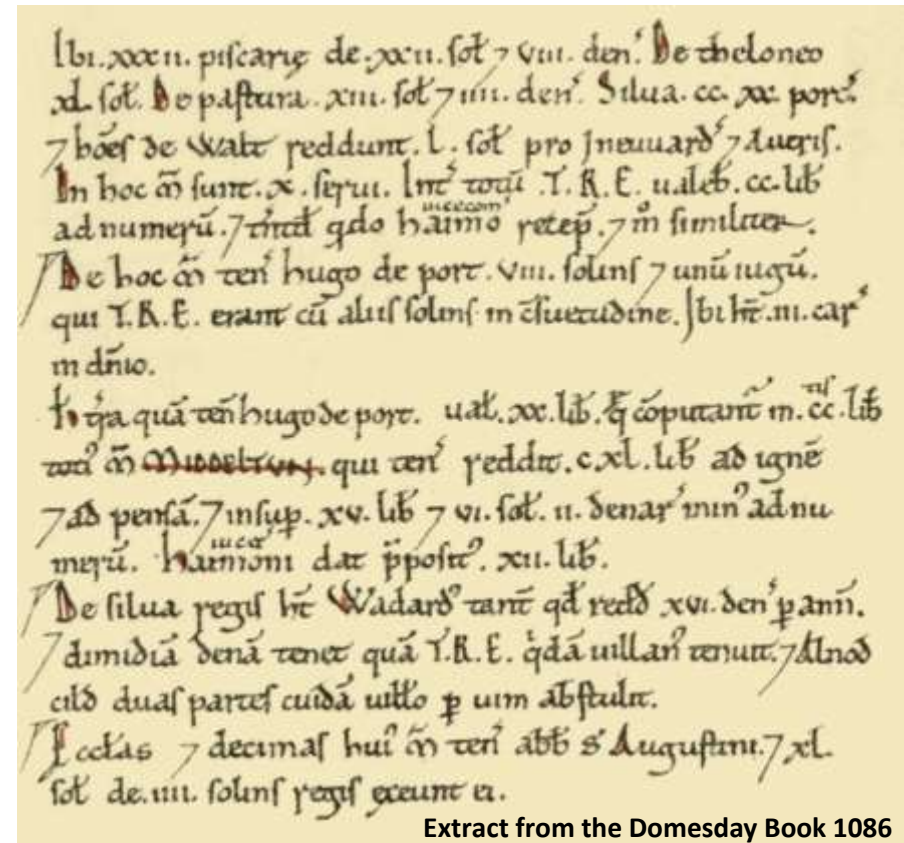 Ibi .xxxii. piscarię de .xxii. sol̃ ⁊ viii. den̾. De theloneo
xl. sol̃. De pastura. xiii. sol̃ ⁊ iiii. den̾. Silua. cc. xx. porc̾.
⁊ hōes de Walt reddunt. l. sol̃ pro Ineuuard̾ ⁊ Aueris.
In hoc m̃ sunt .x. serui. Int̾ totū .T.R.E. ualeb̃. cc. lib̃
ad numerū. ⁊ tn̄tđ qđo haimo uicecom̾ recep̃. ⁊ m̊ similiter.
De hoc m̃ ten̾ hugo de port. viii. solins ⁊ unū iugū.
qui T.R.E. erant cū aliis solins in c̄suetudine. Ibi ht̄ .iii. car̾
in dn̄io.
H̃ t̾ra quā ten̄ hugo de port. ual̃. xx. lib̃. q̄ cōputant̄ in .cc. tis lib̃
toti̾ m̃ MIDDELTVN. qui ten̾ reddit. c.xl. lib̃ ad ignē
⁊ ad pensā. ⁊ insup̱. xv. lib̃ ⁊ vi. sol̃. ii. denar̾ min̾ ad nu
merū. Haimoni uicec̾ dat p̄posit̾. xii. lib̃.
De silua regis ht̄ Wadard̾ tant̄ qđ redđ xvi. den̾ p̱ ann̄.
⁊ dimidiā denā tenet quā T.R.E. q̾dā uillan̾ tenuit. ⁊ Alnod
cilđ duas partes cuidā uill̃o p̱ uim abstulit.
Ęccl̃as ⁊ decimas hui̾ m̃ ten̾ abb̃ S̾ Augustini. ⁊ xl.
sol̃ de .iiii. solins regis exeunt ei.
Extract from the Domesday Book 1086